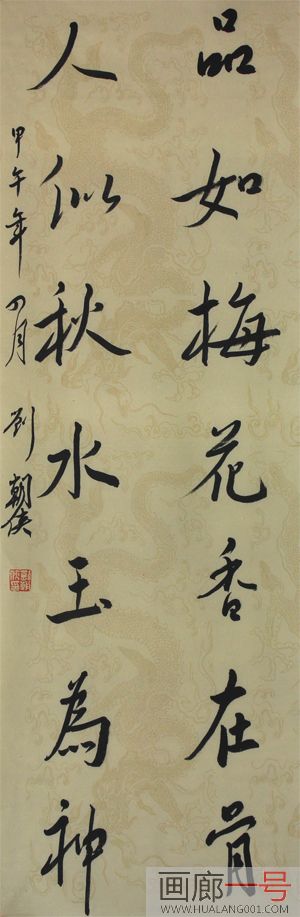 品如梅花香在骨
人似秋水玉為神
甲午年四月 刘朝侠
画廊一号
WWW.HUALANG001.COM